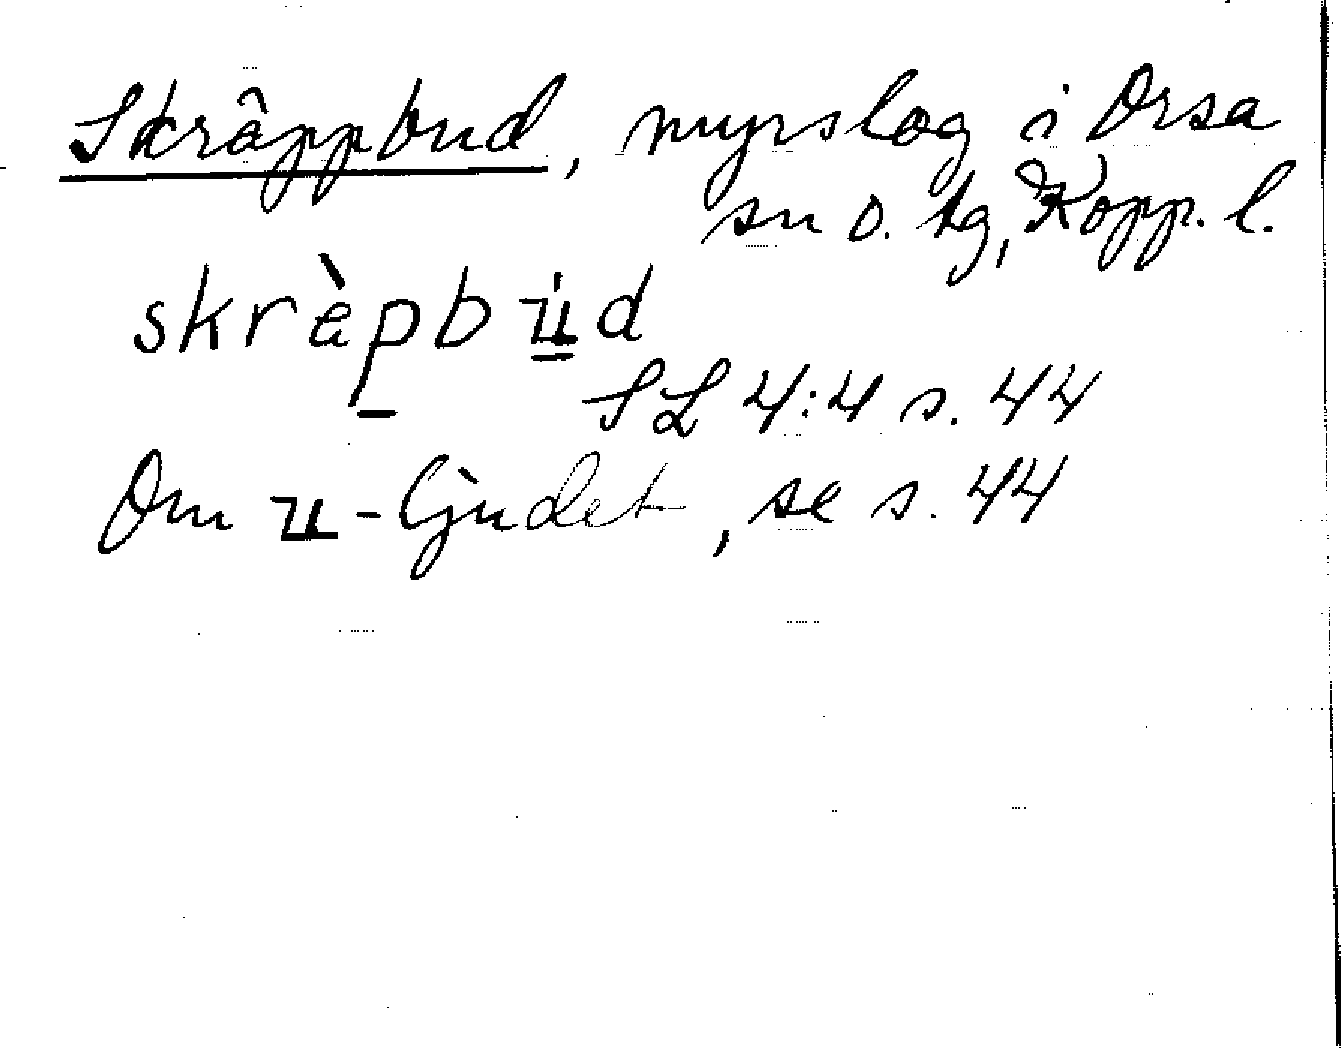 Skräppbud, myrslog i Orsa
sn o. tg, Kopp. l.
skràpbu̇d
SL 4:4 s. 44
Om u-ljudet, se s. 44